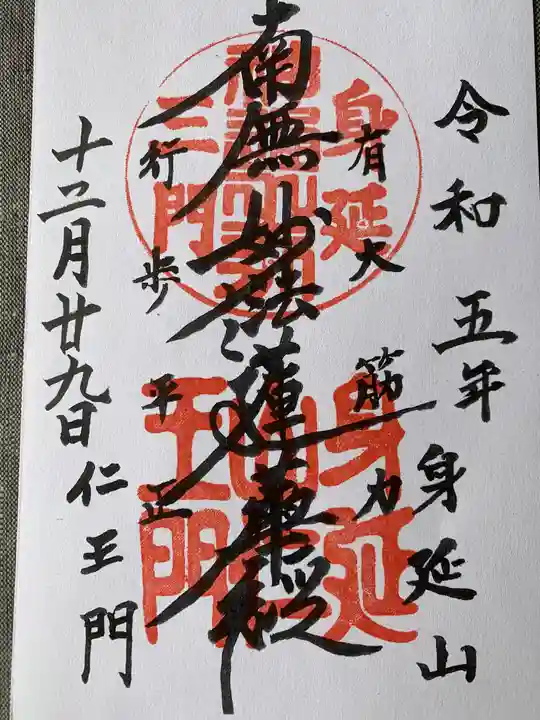 令和五年 身延山
有大筋力
南無妙法蓮華経
行歩平正
十二月廿九日 仁王門
身延
三門
身延山
王門